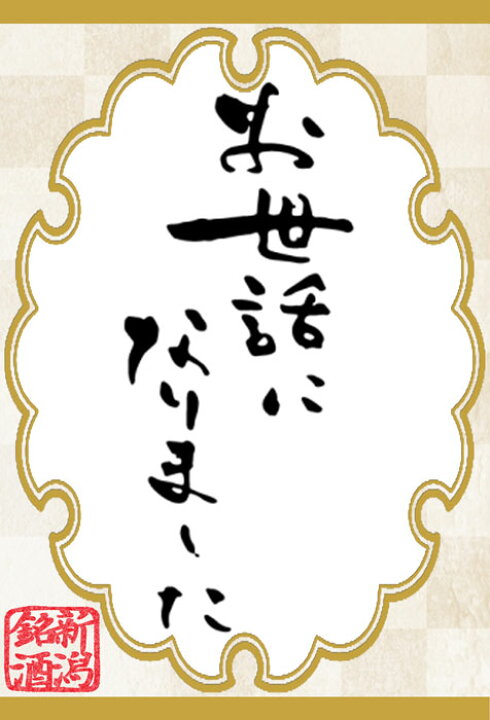 お世話に
なりました
新潟
銘酒